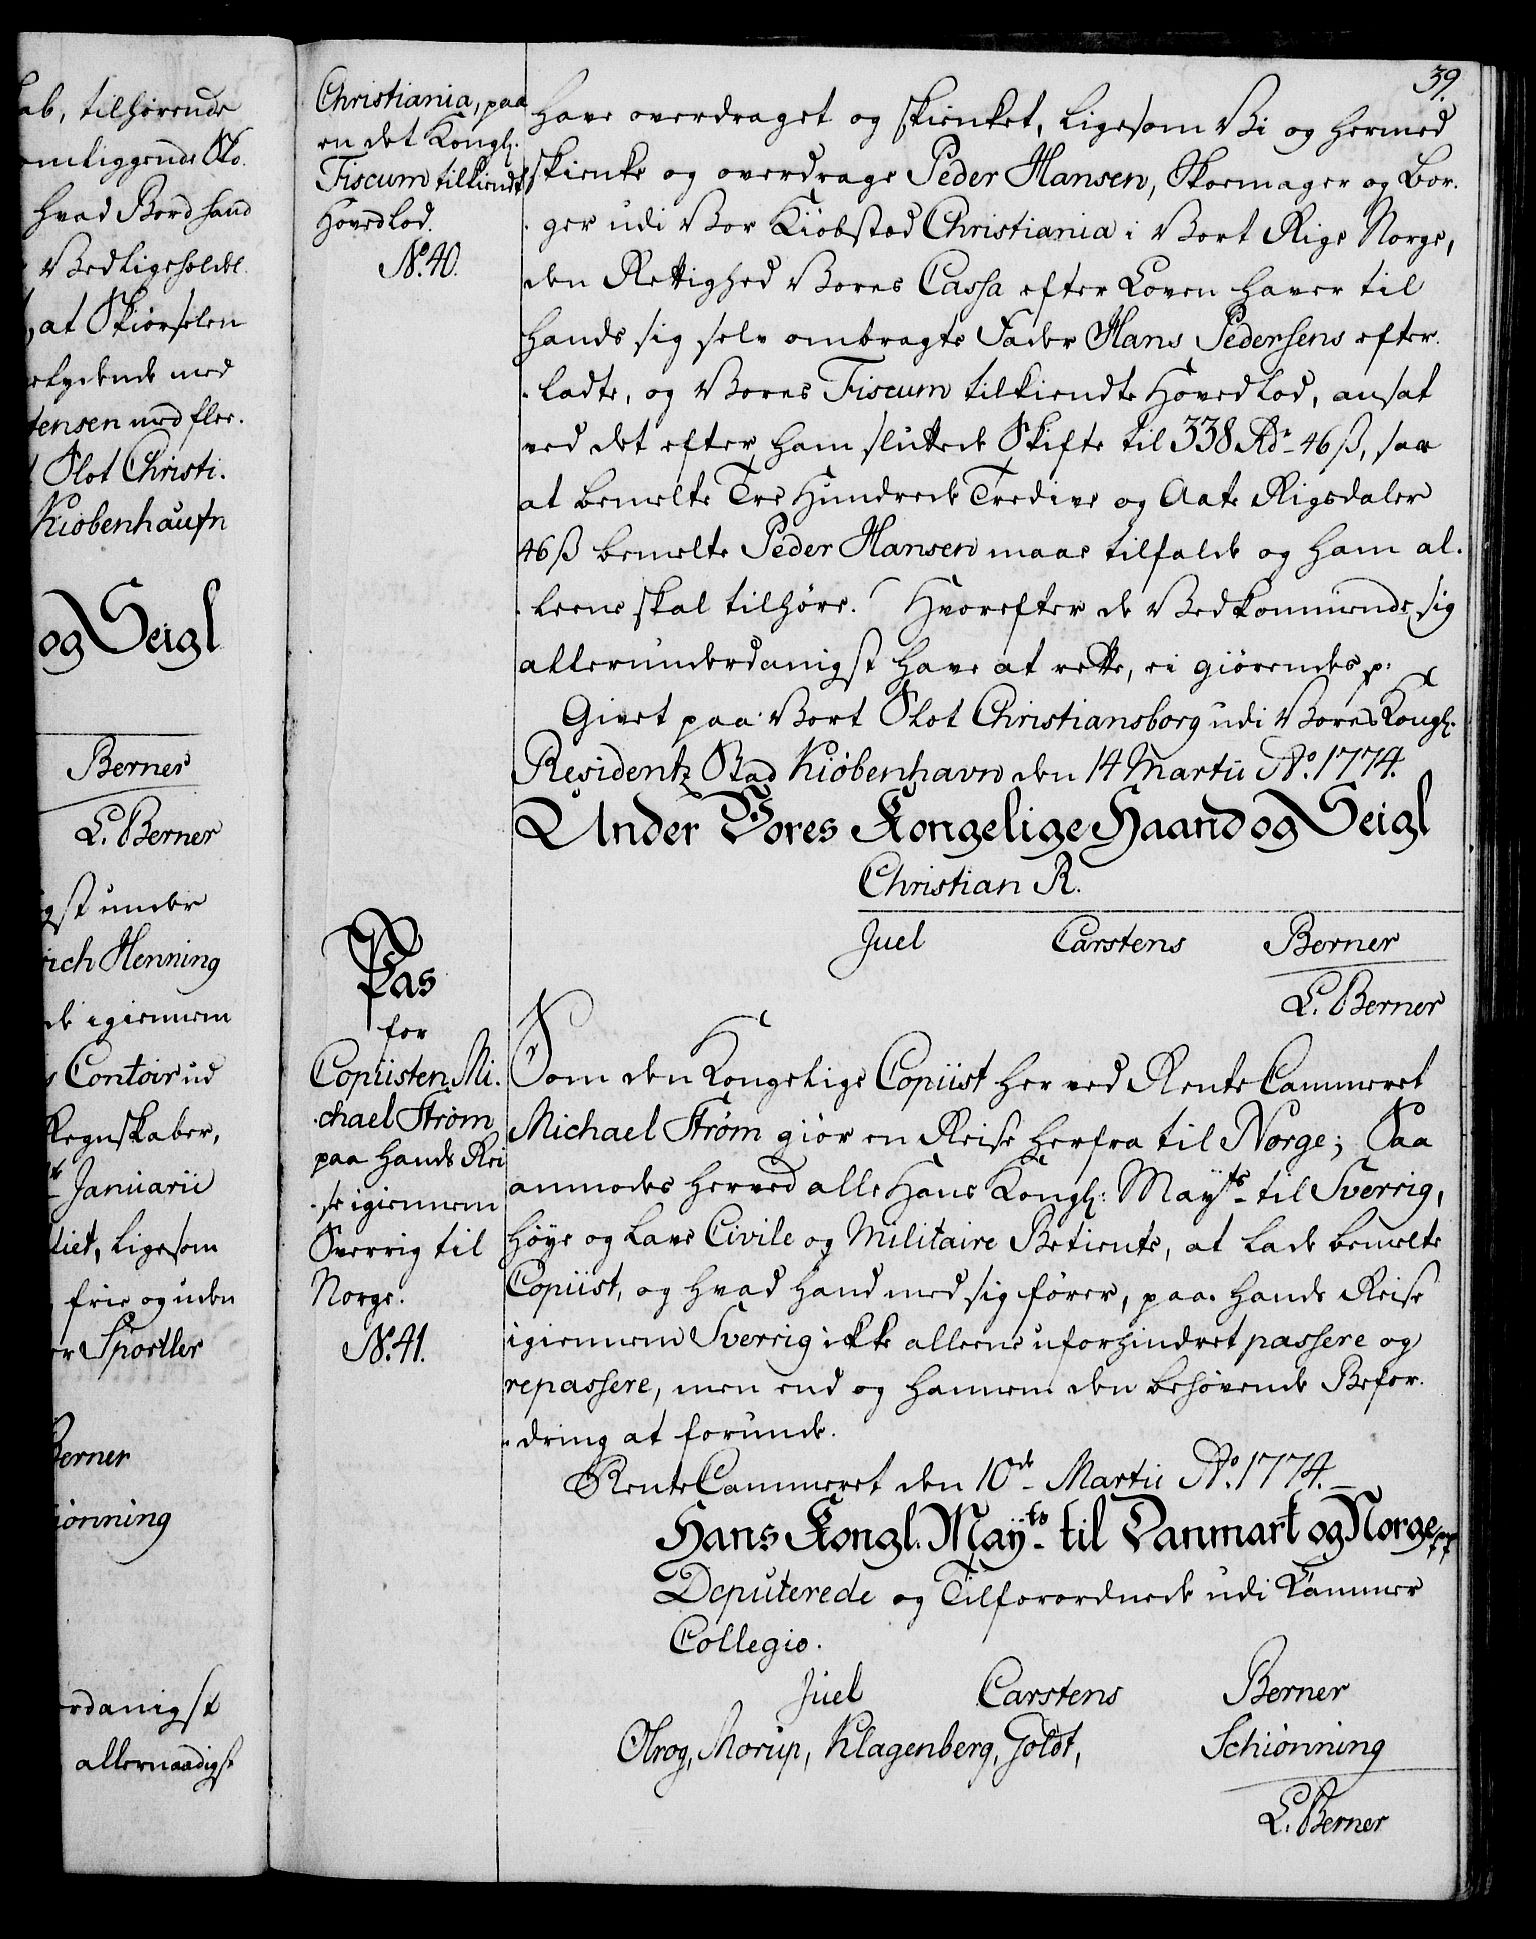 ab, tilhørende
omliggende Sko.
hvad Bord hand
Vedligeholdel.
, at Skiørselen
etydende med
tensen med fler.
Slot Christi.
Kiøbenhaufn
og Seigl
Berner
L. Berner
gst under
rich Henning
de igiennem
s Contoir ud
Regnskaber,
Januarii
tiet, ligesom
frie og uden
er Sportler
Berner
iønning
erdanigst
allernaadigst
39.
Christiania, paa
en det Kongl.
Fiscum tilkiendt
Hovedlod.
No. 40.
have overdraget og skienket, ligesom Vi og hermed
skienke og overdrage Peder Hansen, Skoemager og Bor-
-ger udi Vor Kiøbstad Christiania i Vort Rige Norge,
den Rettighed Vores Cassa efter Loven haver til
hands sig selv ombragte Fader Hans Pedersens efter-
-ladte, og Vores Fiscum tilkiendte Hovedlod, ansat
ved det efter ham sluttede Skifte til 338 Rdr 46 ß, saa
at bemelte Tre Hundrede Tredive og Aate Rigsdaler
46 ß bemelte Peder Hansen maae tilfalde og ham al-
-leene skal tilhøre. Hvorefter de Vedkommende sig
allerunderdanigst have at rette, ei giørendes p.
Givet paa Vort Slot Christiansborg udi Vores Kongl.
Residentz Stad Kiøbenhavn den 14 Martii Ao. 1774.
Under Vores Kongelige Haand og Seigl
Christian R.
Juel Carstens Berner
L. Berner
Pas
for
Copiisten Mi-
-chael Strøm
paa hands Rei
-se igiennem
Sverrig til
Norge.
No. 41.
Som den Kongelige Copiist her ved Rente Cammeret
Michael Strøm giør en Reise herfra til Norge; Saa
anmodes herved alle Hans Kongl: Mayts til Sverrig,
høye og lave Civile og Militaire Betiente, at lade bemelte
Copiist, og hvad hand med sig fører, paa hands Reise
igiennem Sverrig ikke alleene uforhindret passere og
repassere, men end og hannem den behøvende Befor-
-dring at forunde.
Rente Cammeret den 10de Martii Ao. 1774.
Hans Kongl. Mayts til Danmark og Norge pp
Deputerede og Tilforordnede udi Cammer
Collegio.
Juel Carstens Berner
Olrog, Morup, Klagenberg, Goldt, Schiønning
L. Berner